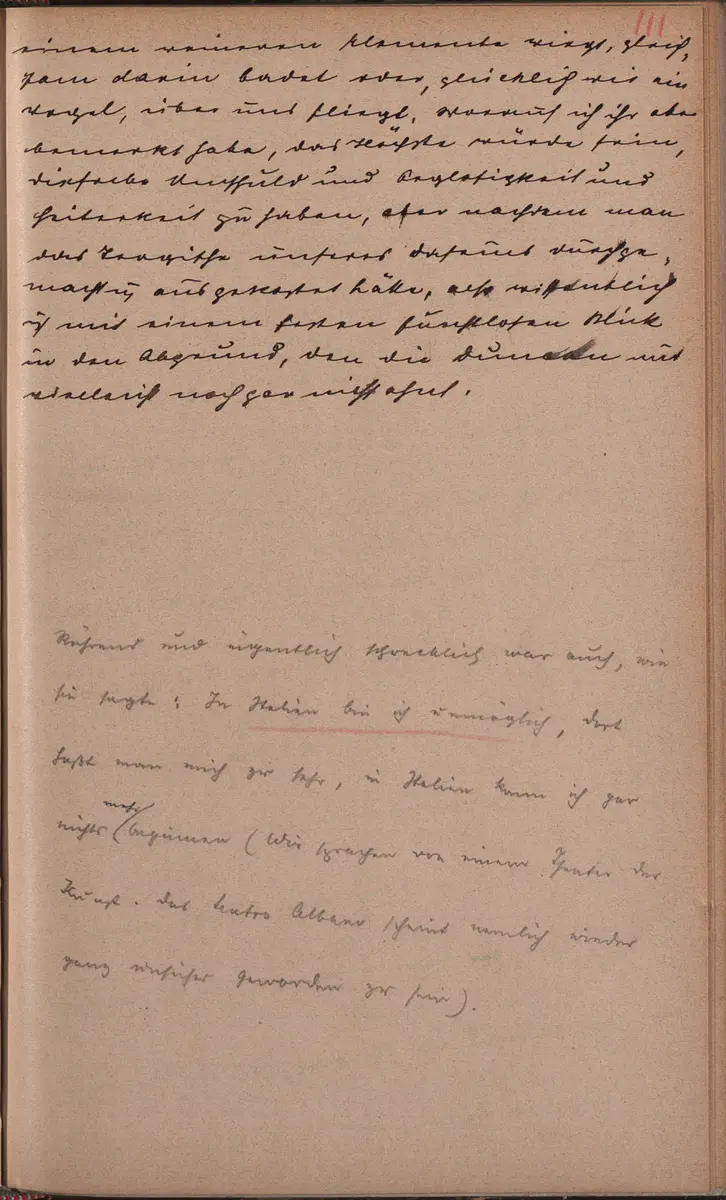 111
einem reineren Elemente wiegt, gleich,
sam darin badet oder, glücklich wie ein
Vogel, über uns fliegt, worauf ich ihr aber
bemerkt habe, das Höchste würde sein,
dieselbe Unschuld und Segligkeit und
Heiterkeit zu haben, aber nachdem man
das Tragische unseres Daseins durchge,
macht u ausgekostet hätte, also wissentlich
u mit einem festen furchtlosen Blick
in den Abgrund, den die Duncan uns
vielleicht noch gar nicht ahnt.
Rührend und eigentlich schrecklich war auch, wie
sie sagte: In Italien bin ich unmöglich, dort
haßt man mich zu sehr, in Italien kann ich gar
nichts mehr beginnen (Wir sprachen von einem Theater der
Kunst. Das teatro Albano scheint nemlich wieder
ganz unsicher geworden zu sein).